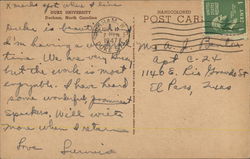 X marks spot where I live
DUKE UNIVERSITY
Durham, North Carolina
HANDCOLORED
POST CARD
Duke is beautiful
I'm having a
time. We are very busy
but the work is most
enjoyable. I have heard
some wonderful prominent
speakers. Will write
more when I return
Love
Mrs A. J.
Apt C-24
1140 E. Rio Grande St
El Paso, Texas